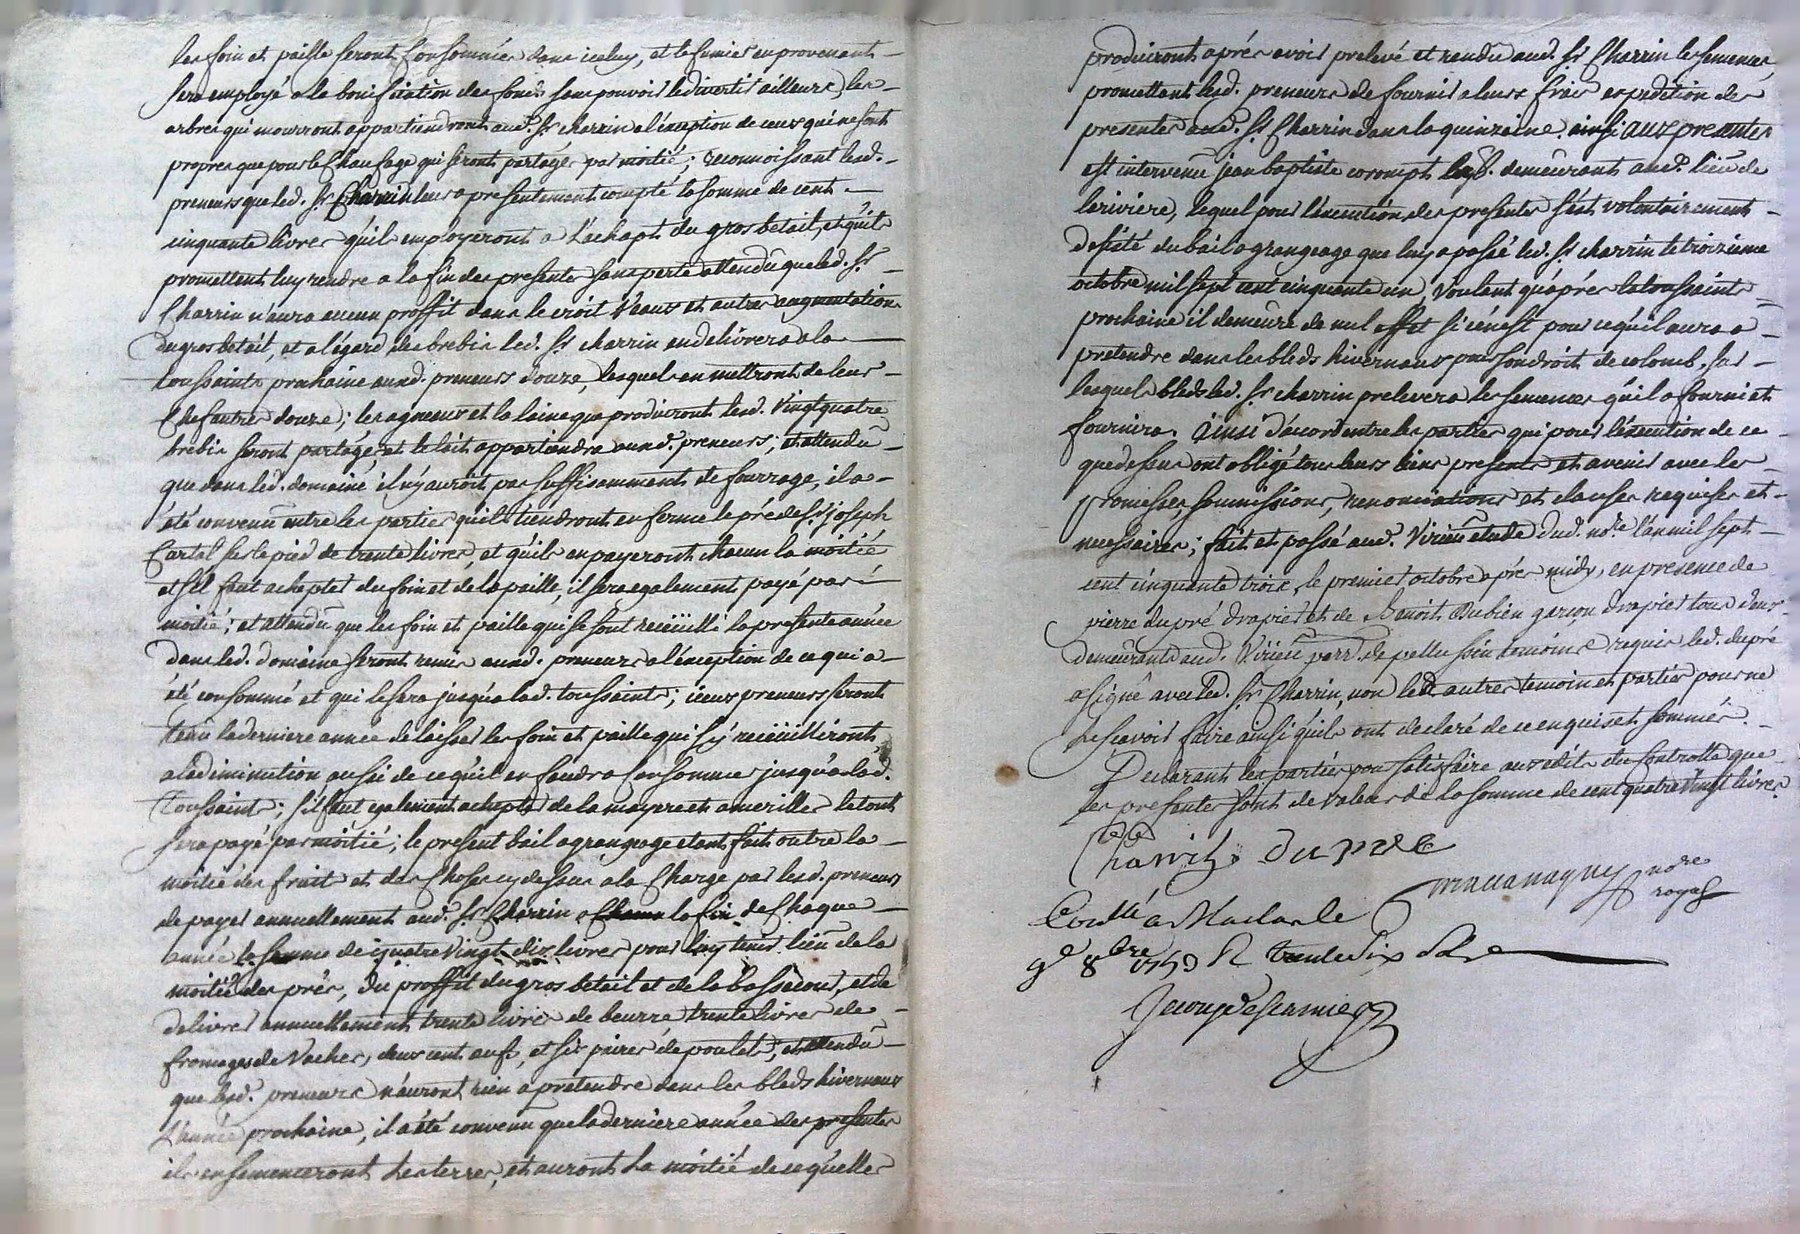 les foin et paille seront consommés dans iceluy, et le fumier en provenant
sera employé a la bonification des fonds sans pouvoir le divertir ailleurs, les
arbres qui mourront appartiendront aud. Sr charrin a l'exception de ceux qui ne sont
propres que pour le chaufage qui seront partagés par moitié; reconnoissant lesd.
preneurs que led. Sr Charrin leur a presentement compté la somme de cent
cinquante livres qu'ils employeront a l'achapt du gros betail, et qu'ils
promettent luy rendre a la fin des presentes sans perte attendû que led. Sr
Charrin n'aura aucun proffit dans le croit veaux et autres augmentations
du gros betail, et a l'égard des brebis led. Sr charrin en delivrera a la
toussaints prochaine auxd. preneurs douze, lesquels en mettront de leur
chef autres douze; les agneaux et la laine que produiront lesd. vingt quatre
brebis seront partagés et le lait appartiendra auxd. preneurs; et attendû
que dans led. domaine il n'y auroit pas suffisamment de fourrage, il a
été convenû entre les parties qu'ils tiendront en ferme le pré de Sr joseph
Cartal sur le pied de trente livres, et qu'ils en payeront chacun la moitié
et s'il faut achepter du foin et de la paille, il sera egalement payé par
moitié; et attendû que les foin et paille qui se sont receüilli la presente année
dans led. domaine seront remis auxd. preneurs a l'exception de ce qui a
été consommé et qui le sera jusqu'a lad. toussaints; iceux preneurs seront
tenû la derniere année de laisser les foin et paille qui s'y receüilliront
a la diminution aussi de ce qu'il en faudra consommer jusqu'a lad.
toussaint; s'il faut egalement achepter de la mayere et ameriller le tout
sera payé par moitié; le present bail a grangeage etant fait outre la
moitié des fruit et des choses cy dessus a la charge par lesd. preneurs
de payer annuellement aud. Sr Charrin a la fin de chaque
année la somme de quatre vingt dix livres pour luy tenir lieû de la
moitié des prés, du proffit du gros betail et de la bassecour, et de
delivrer annuellement trente livres de beurre trente livres de
fromages de vaches, deux cent œufs, et six paires de poulets; et attendû
que lesd. preneurs n'auront rien a prétendre dans les bleds hivernaux
l'année prochaine, il a été convenû que la derniere année des presentes
ils ensementeront les terres, et auront la moitié de ce qu'elles
produiront aprés avoir prelevé et rendu aud. Sr Charrin les semences,
promettant lesd. preneurs de fournir a leurs frais expedition des
presentes aud. Sr Charrin dans la quinzaine. ainsi aux presentes
est intervenû jean baptiste corompt demeurant aud. lieû de
lariviere, lequel pour l'execution des presentes s'est volontairement
desisté du bail a grangeage que luy a passé led. Sr charrin le troizieme
octobre mil sept cent cinquante un, voulant qu'aprés la toussaint
prochaine il demeure de nul effet si ce n'est pour ce qu'il aura a
pretendre dans les bleds hivernaux par son droit de colomb. sur
lesquels bleds led. Sr charrin prelevera les semences qu'il a fourni et
fournira. Ainsi d'acord entre les parties qui pour l'éxecution de ce
que dessus ont obligé tous leurs biens presents et avenir avec les
promesses, soumissions, renonciations et clauses requises et
necessaires; fait et passé aud. Virieû étude dud. nore. l'an mil sept
cent cinquante trois, le premier octobre aprés midy, en presence de
pierre dupré drapier et de Benoit Dubien garçon drapier tous deux
demeurants aud. Virieû parr. de pellussin temoins requis led. dupré
a signé avec led. Sr Charrin, non led. autre temoin et parties pour ne
le scavoir faire ainsi qu'ils ont declaré de ce enquis et sommés.
Declarant les parties pour satisfaire aux edits du controlle que
les presentes sont de valeur de la somme de cent quatre vingt livres.
Charrin Dupré
nore
royal
Contllé a Maclas le
9e 8bre 1753 R trente six sols